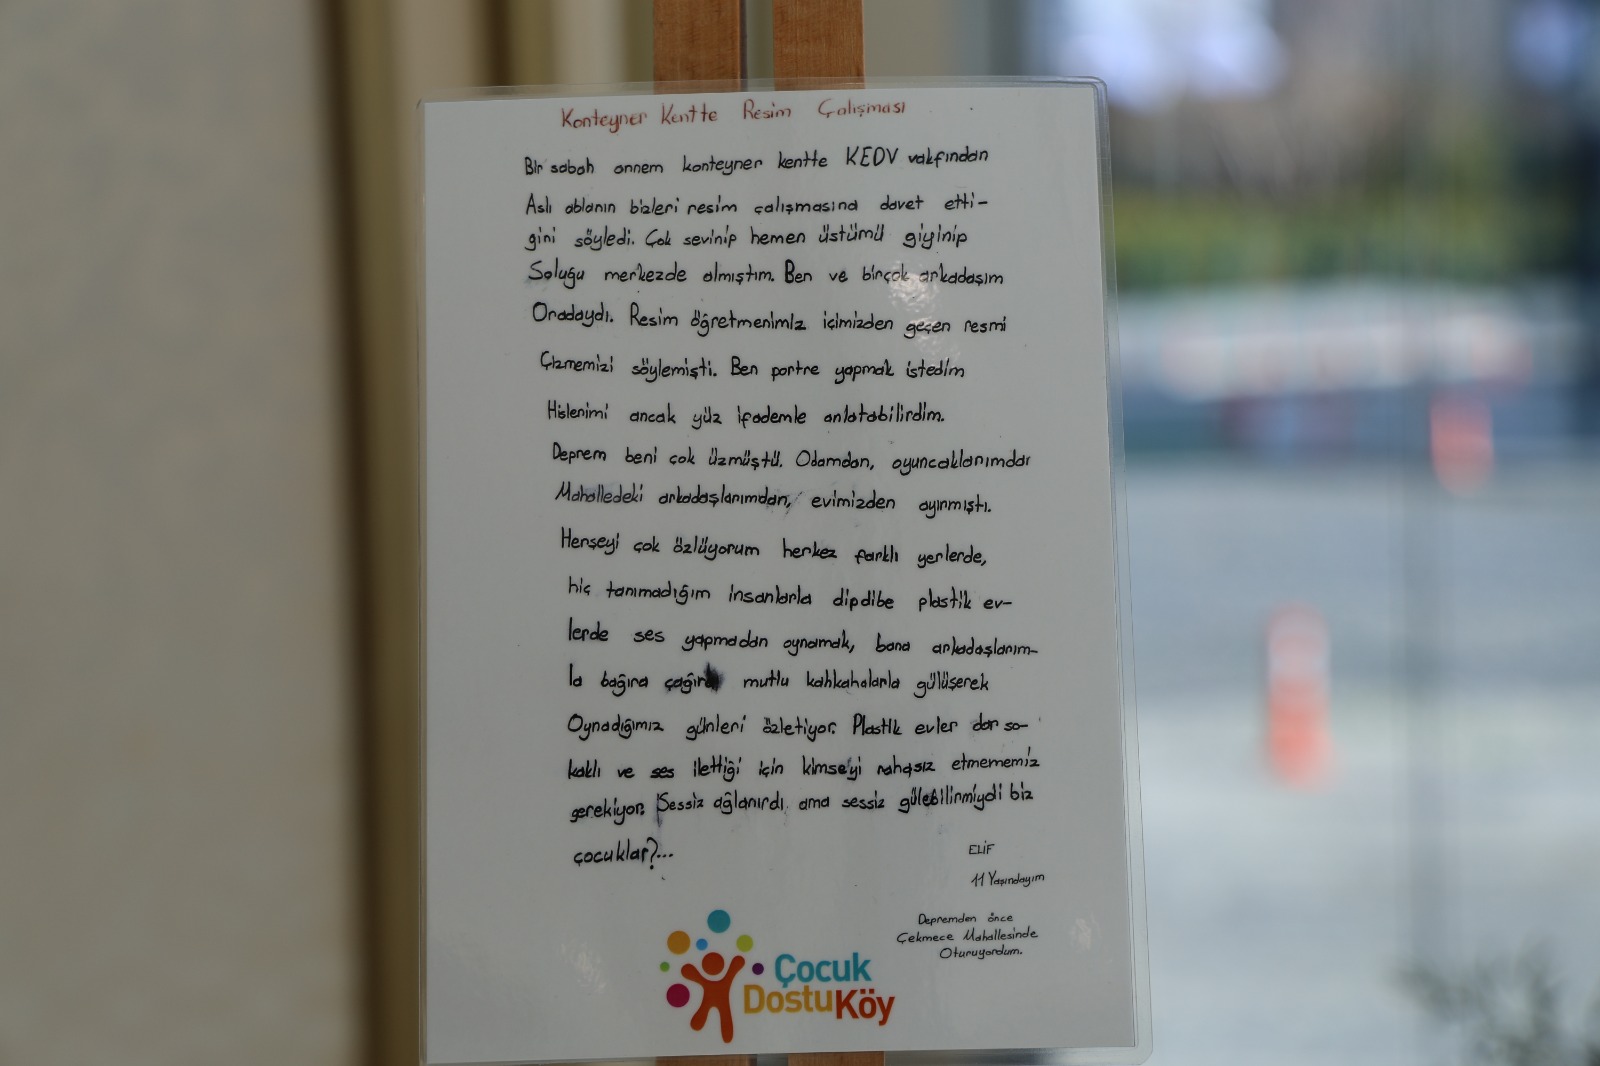 Konteyner Kentte Resim Çalışması
Bir sabah annem konteyner kentte KEDV vakfından
Aslı ablanın bizleri resim çalışmasına davet etti-
ğini söyledi. Çok sevinip hemen üstümü giyinip
Soluğu merkezde almıştım. Ben ve birçok arkadaşım
Oradaydı. Resim öğretmenimiz içimizden geçen resmi
Çizmemizi söylemişti. Ben portre yapmak istedim
Hislerimi ancak yüz ifademle anlatabilirdim.
Deprem beni çok üzmüştü. Odamdan, oyuncaklarımdar
Mahalledeki arkadaşlarımdan, evimizden ayırmıştı.
Herşeyi çok özlüyorum herkez farklı yerlerde,
hiç tanımadığım insanlarla dipdibe plastik ev-
lerde ses yapmadan oynamak, bana arkadaşlarım-
la bağıra çağıra mutlu kahkahalarla gülüşerek
Oynadığımız günleri özletiyor. Plastik evler dar so-
kaklı ve ses ilettiği için kimseyi rahasız etmememiz
gerekiyor. Sessiz ağlanırdı ama sessiz gülebilirmiydi biz
çocuklar?...
ELİF
11 Yaşındayım
Depremden önce
Çekmece Mahallesinde
Oturuyordum.
Çocuk
DostuKöy